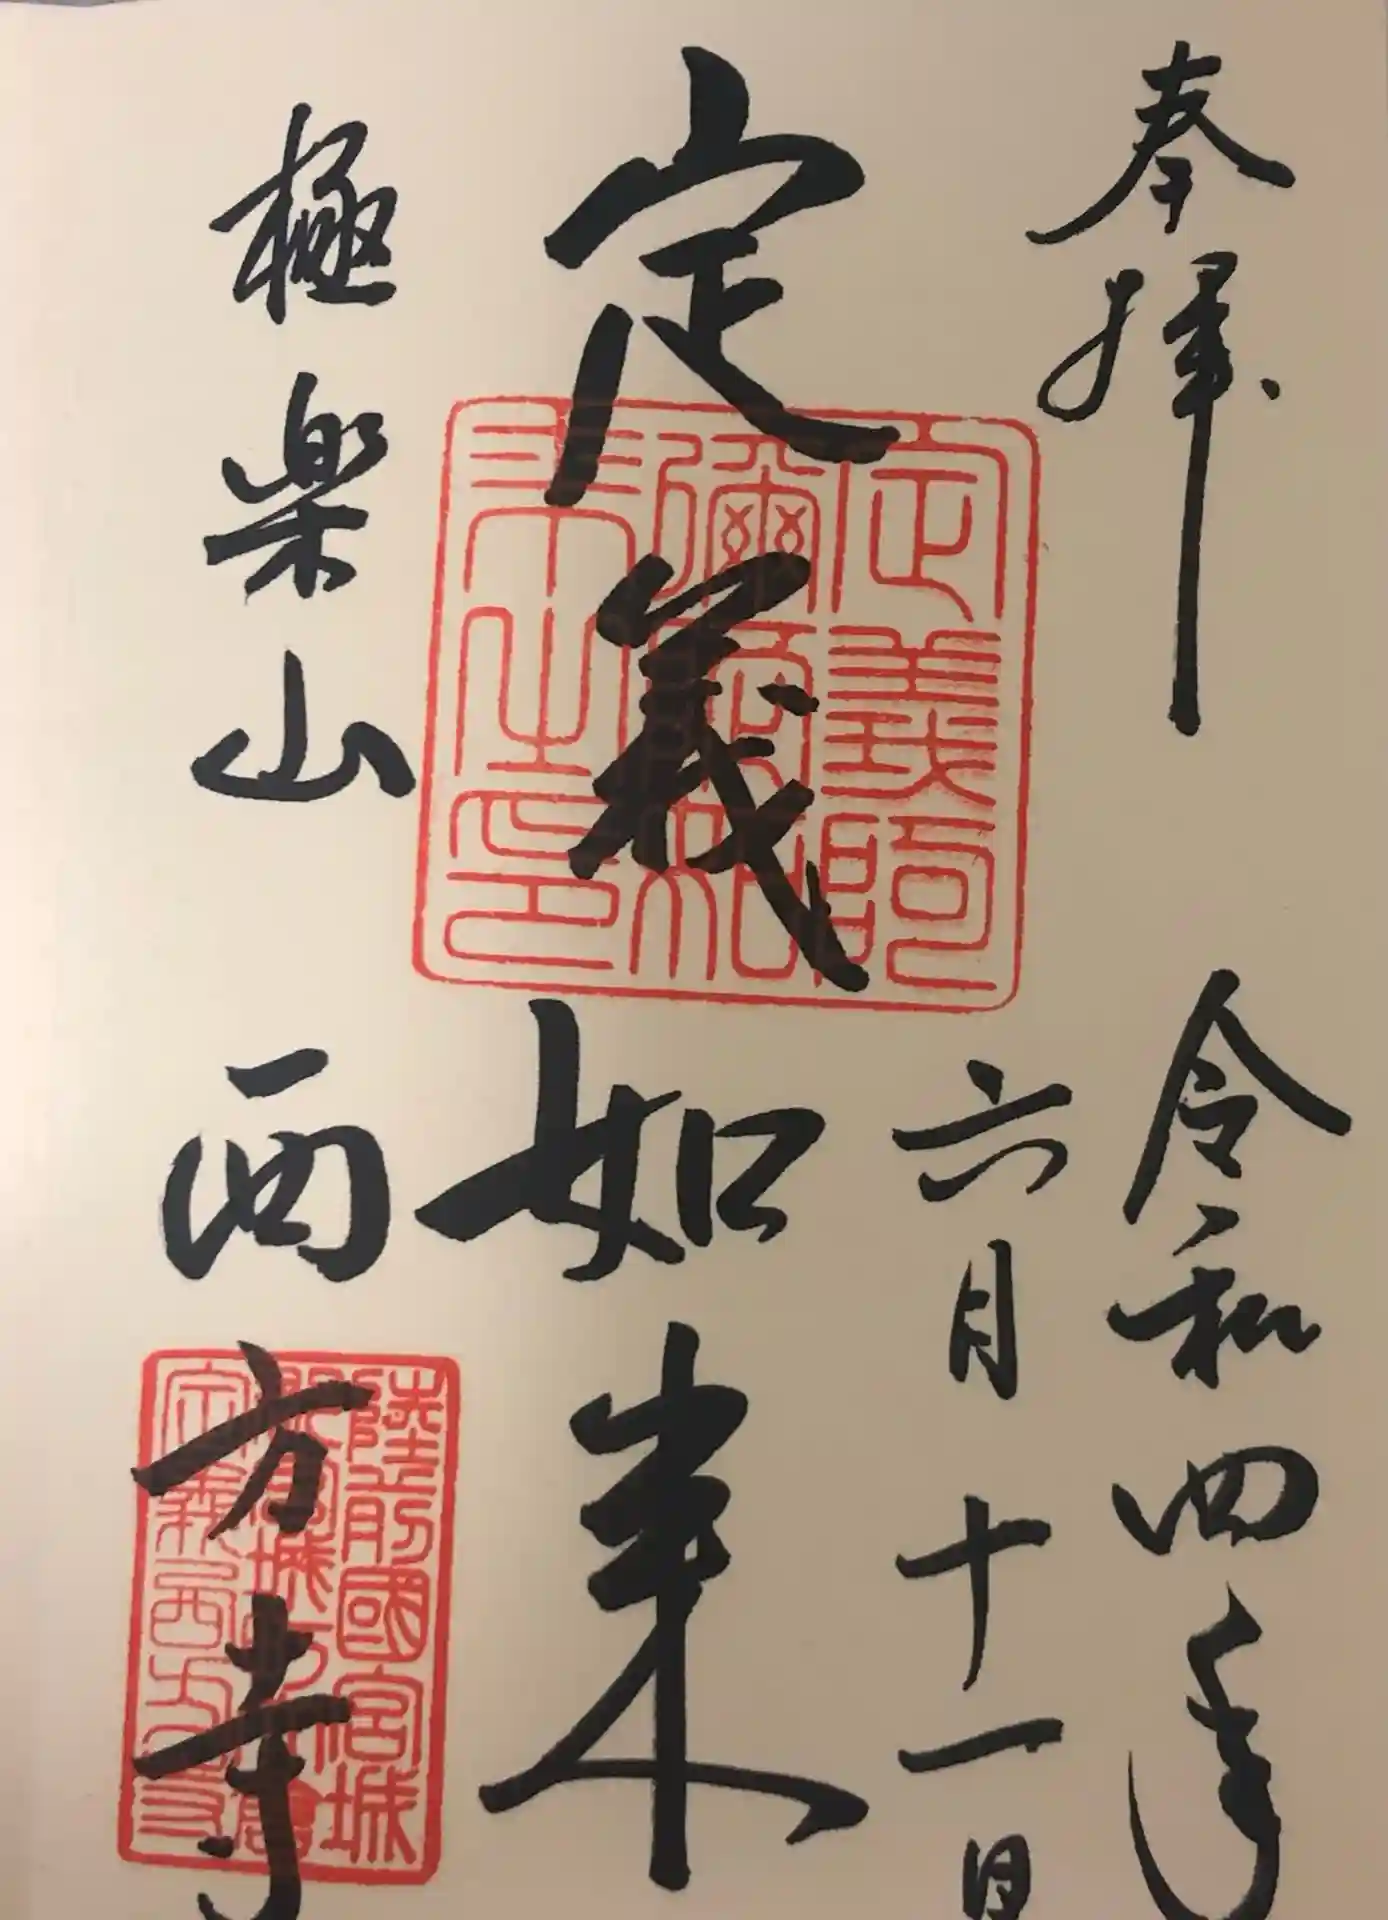 奉拝
令和四年
六月十一日
定義如来
定義阿
彌陀如
来之印
極楽山
西方寺
陸前國宮城
定義西方寺